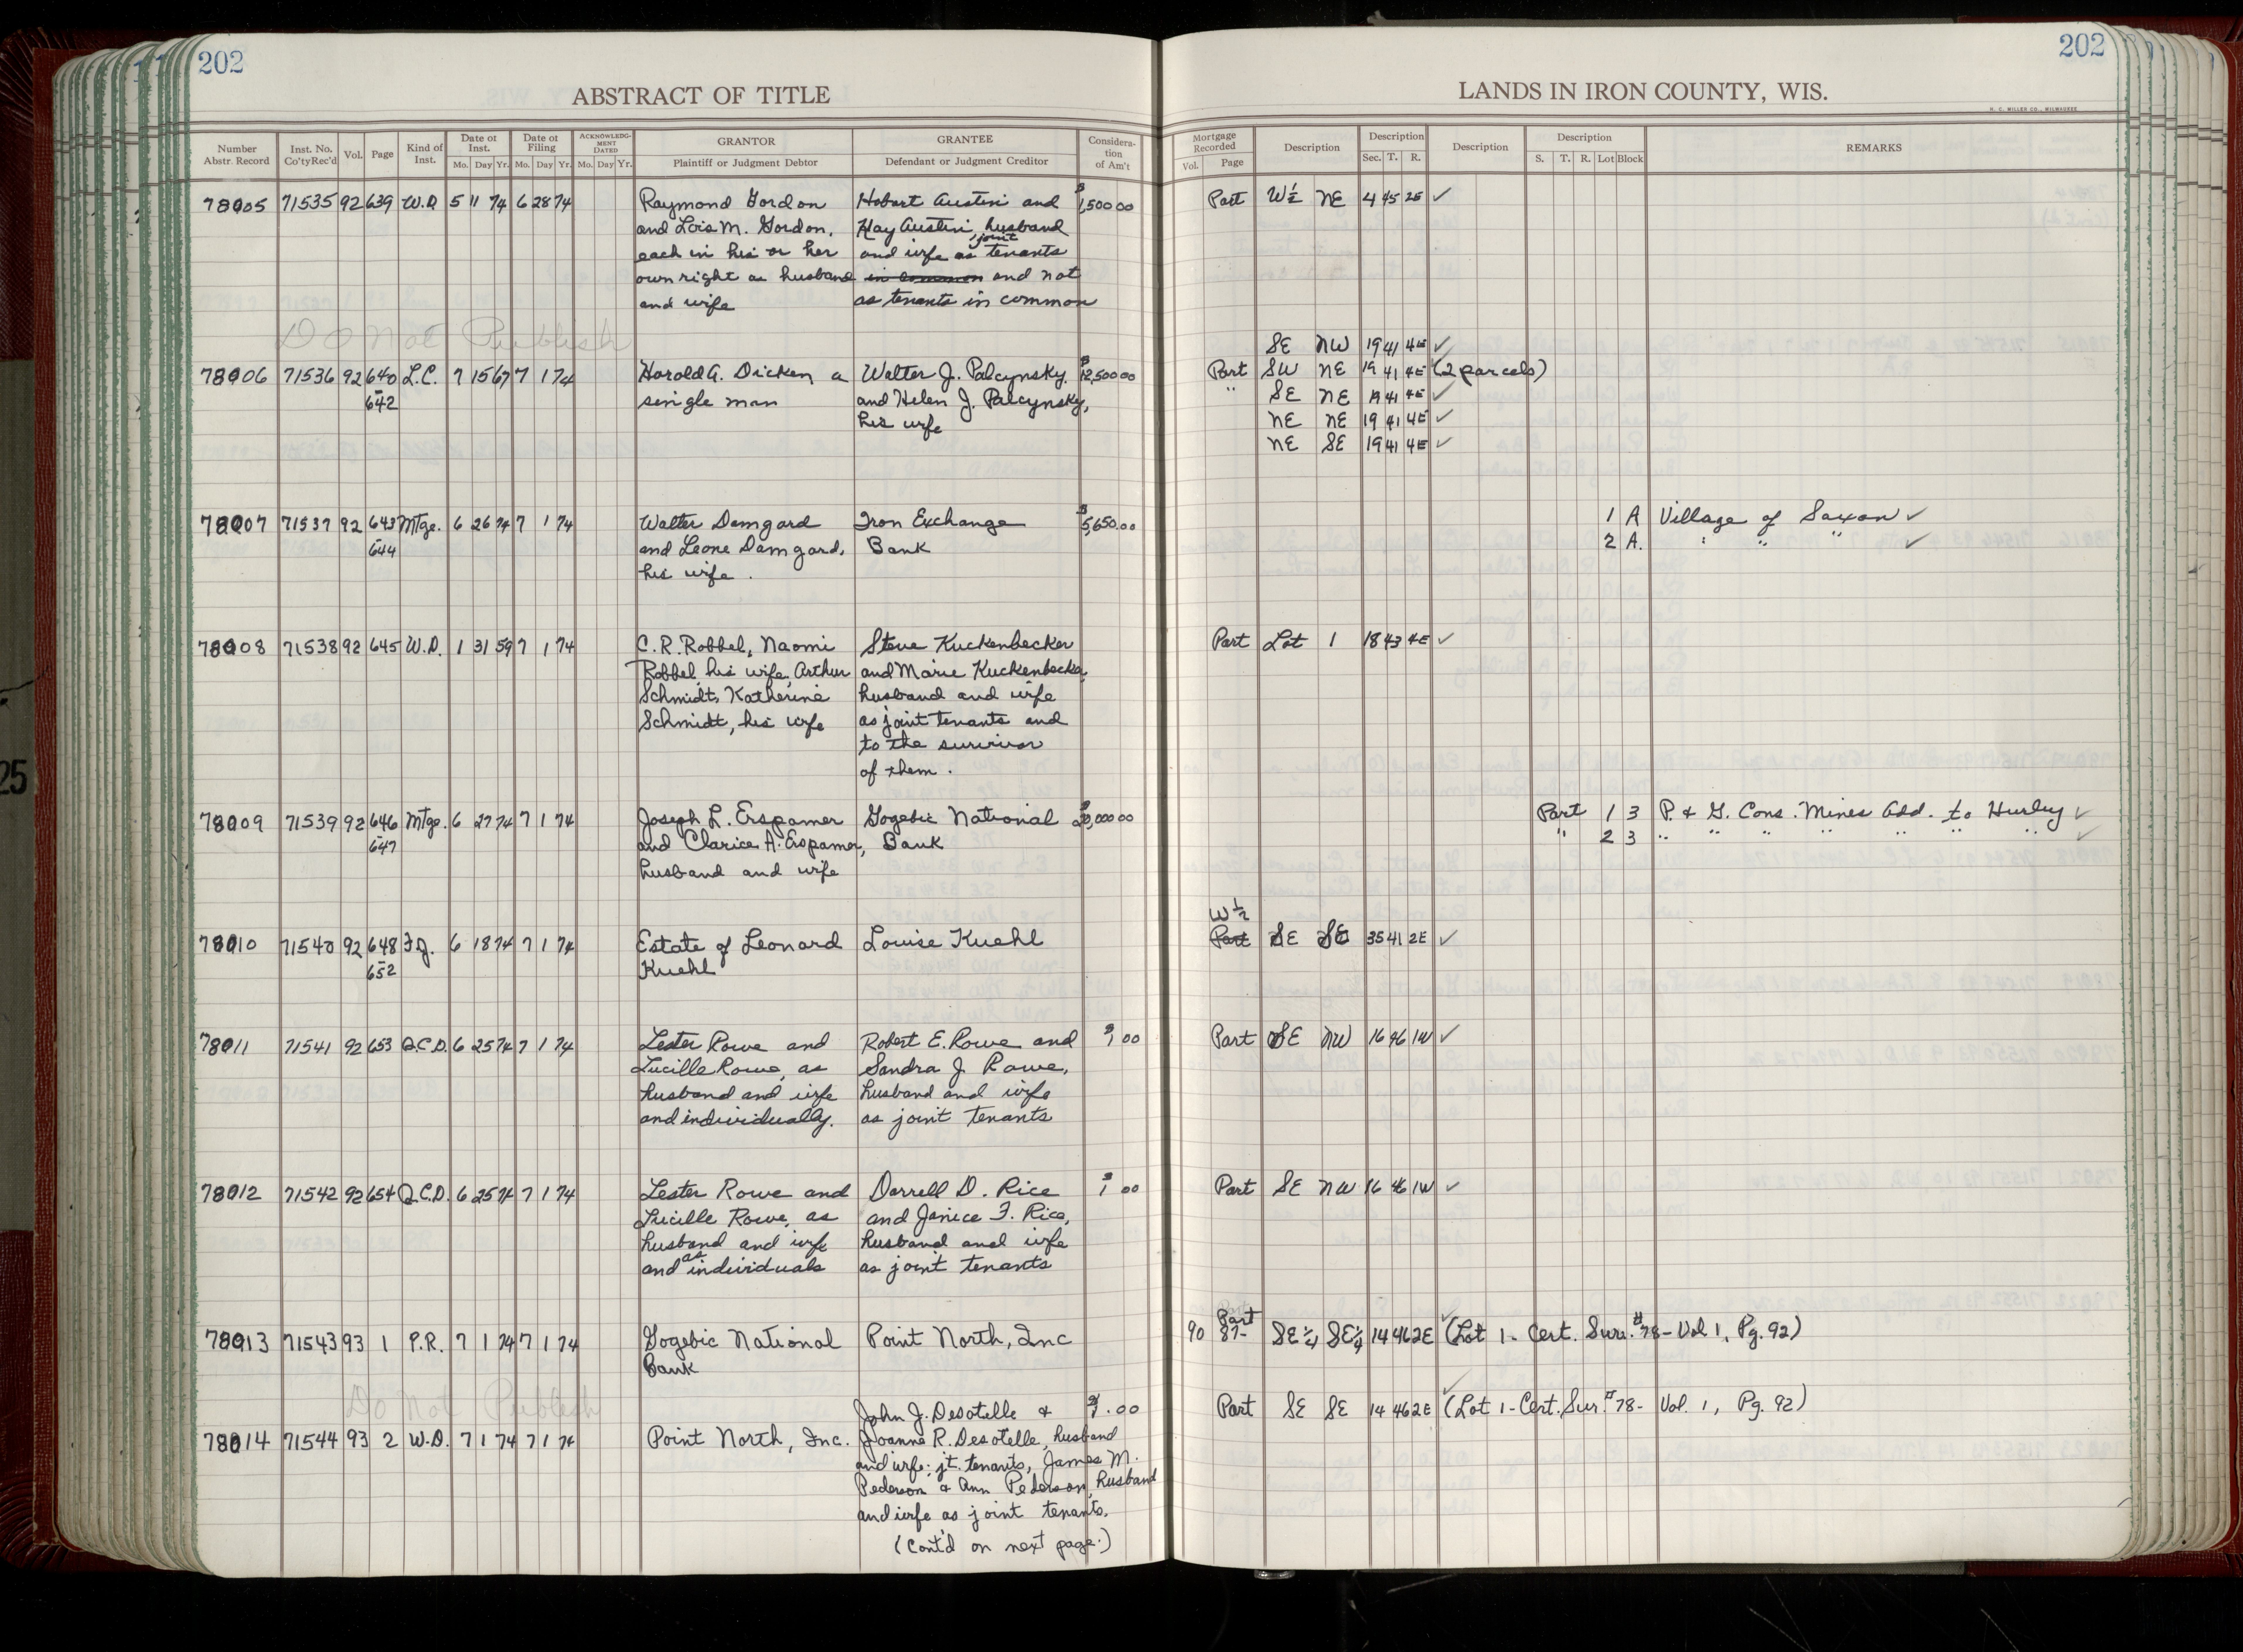 202
202
ABSTRACT OF TITLE
LANDS IN IRON COUNTY, WIS.
H. C. MILLER CO., MILWAUKEE
Number Abstr. Record | Inst. No. Co'ty Rec'd | Vol. | Page | Kind of Inst. | Date of Inst. Mo. Day Yr. | Date of Filing Mo. Day Yr. | ACKNOWLEDGMENT DATED Mo. Day Yr. | GRANTOR Plaintiff or Judgment Debtor | GRANTEE Defendant or Judgment Creditor | Consideration of Am't | Mortgage Recorded Vol. Page | Description | Description Sec. T. R. | Description | Description S. T. R. Lot Block | REMARKS
78005 71535 92 639 W.D. 5 11 74 6 28 74 Raymond Gordon Hobart Austin and $1,500 00 Part W½ NE 4 45 2E ✓
and Lois M. Gordon, Kay Austin, husband
each in his or her and wife as joint tenants
own right as husband in common and not
and wife as tenants in common
Do Not Publish
SE NW 19 41 4E ✓
78006 71536 92 640 L.C. 7 15 67 7 1 74 Harold A. Dicken a Walter J. Palcynsky $12,500 00 Part SW NE 19 41 4E (2 parcels)
- 642 single man and Helen J. Palcynsky, " SE NE 19 41 4E ✓
his wife NE NE 19 41 4E ✓
NE SE 19 41 4E ✓
78007 71537 92 643 Mtge. 6 26 74 7 1 74 Walter Damgard Iron Exchange $5,650.00 1 A Village of Saxon ✓
- 644 and Leone Damgard, Bank 2 A. " " " ✓
his wife.
78008 71538 92 645 W.D. 1 31 59 7 1 74 C.R. Robbel, Naomi Steve Kuckenbecker Part Lot 1 18 43 4E ✓
Robbel, his wife, Arthur and Marie Kuckenbecker,
Schmidt, Katherine husband and wife
Schmidt, his wife as joint tenants and
to the survivor
of them.
78009 71539 92 646 Mtge. 6 27 74 7 1 74 Joseph L. Erspamer Gogebic National $20,000 00 Part 1 3 P. & G. Cons. Mines Add. to Hurley ✓
- 647 and Clarice A. Erspamer, Bank " 2 3 " " " " " " " ✓
husband and wife
W½
78010 71540 92 648 F.J. 6 18 74 7 1 74 Estate of Leonard Louise Kuehl Part SE SE 35 41 2E ✓
- 652 Kuehl
78011 71541 92 653 Q.C.D. 6 25 74 7 1 74 Lester Rowe and Robert E. Rowe and $1 00 Part SE NW 16 46 1W ✓
Lucille Rowe, as Sandra J. Rowe,
husband and wife husband and wife
and individually. as joint tenants
78012 71542 92 654 Q.C.D. 6 25 74 7 1 74 Lester Rowe and Darrell D. Rice $1 00 Part SE NW 16 46 1W ✓
Lucille Rowe, as and Janice F. Rice,
husband and wife husband and wife
and as individuals as joint tenants
Part
78013 71543 93 1 P.R. 7 1 74 7 1 74 Gogebic National Point North, Inc 90 87- SE¼ SE¼ 14 46 2E ✓ (Lot 1 - Cert. Surv. #78 - Vol 1, Pg. 92)
Bank
Do Not Publish
John J. Desotelle & $1.00 Part SE SE 14 46 2E ✓ (Lot 1 - Cert. Sur. #78 - Vol. 1, Pg. 92)
78014 71544 93 2 W.D. 7 1 74 7 1 74 Point North, Inc. Joanne R. Desotelle, husband
and wife; jt. tenants, James M.
Pederson & Ann Pederson, husband
and wife as joint tenants.
(Cont'd on next page.)
25